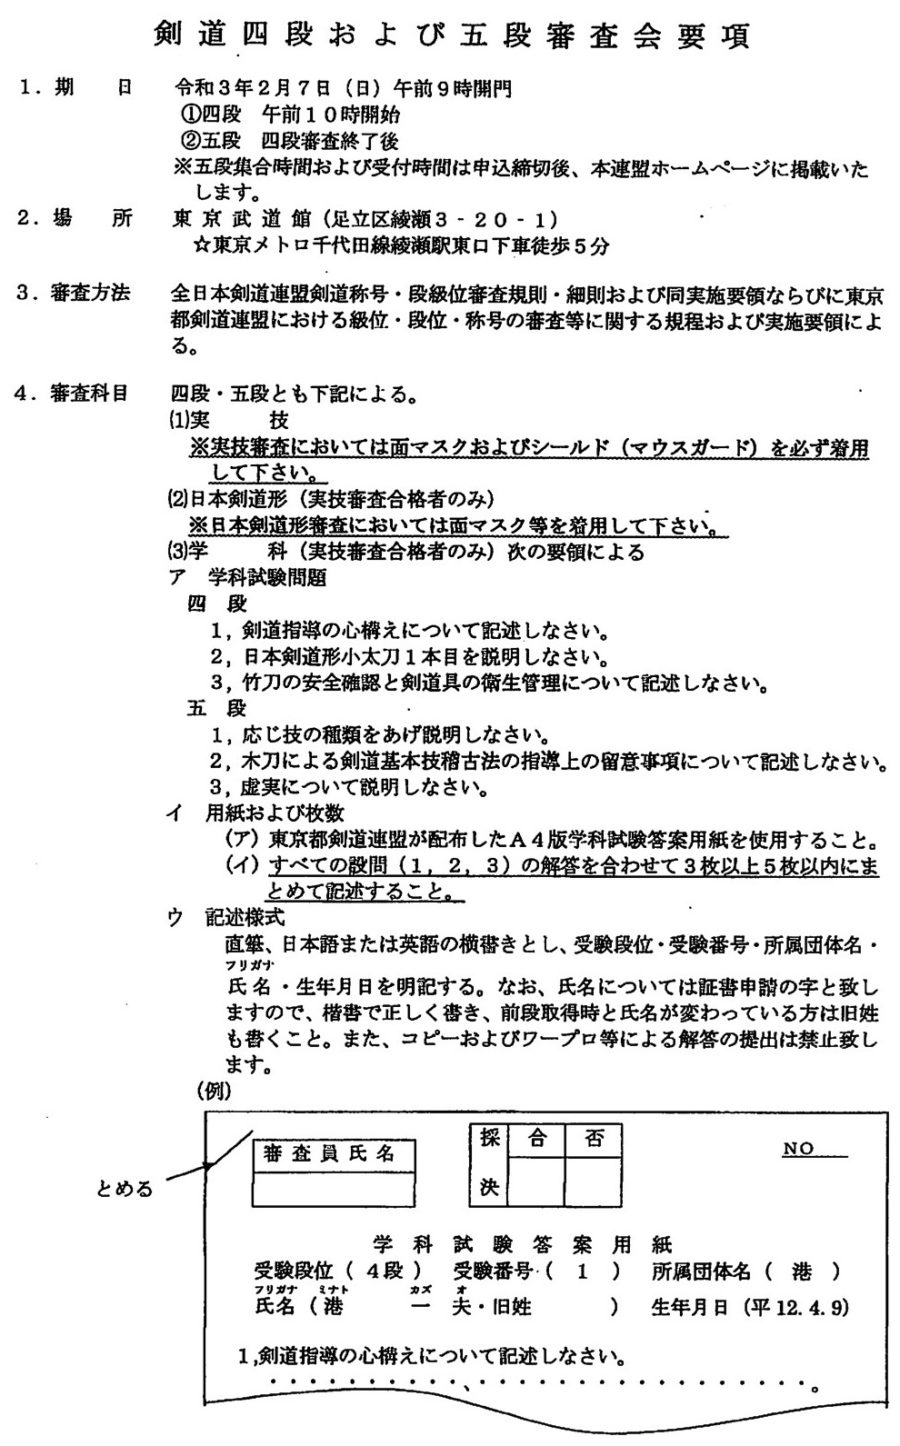 剣道四段および五段審査会要項
１．期　　日　令和３年２月７日（日）午前９時開門
①四段　午前１０時開始
②五段　四段審査終了後
※五段集合時間および受付時間は申込締切後、本連盟ホームページに掲載いた
します。
２．場　　所　東 京 武 道 館（足立区綾瀬３－２０－１）
☆東京メトロ千代田線綾瀬駅東口下車徒歩５分
３．審査方法　全日本剣道連盟剣道称号・段級位審査規則・細則および同実施要領ならびに東京
都剣道連盟における級位・段位・称号の審査等に関する規程および実施要領によ
る。
４．審査科目　四段・五段とも下記による。
(1)実　　　技
※実技審査においては面マスクおよびシールド（マウスガード）を必ず着用
して下さい。
(2)日本剣道形（実技審査合格者のみ）
※日本剣道形審査においては面マスク等を着用して下さい。
(3)学　　　科（実技審査合格者のみ）次の要領による
ア　学科試験問題
四　段
１，剣道指導の心構えについて記述しなさい。
２，日本剣道形小太刀１本目を説明しなさい。
３，竹刀の安全確認と剣道具の衛生管理について記述しなさい。
五　段
１，応じ技の種類をあげ説明しなさい。
２，木刀による剣道基本技稽古法の指導上の留意事項について記述しなさい。
３，虚実について説明しなさい。
イ　用紙および枚数
（ア）東京都剣道連盟が配布したＡ４版学科試験答案用紙を使用すること。
（イ）すべての設問（１，２，３）の解答を合わせて３枚以上５枚以内にま
とめて記述すること。
ウ　記述様式
直筆、日本語または英語の横書きとし、受験段位・受験番号・所属団体名・
フリガナ
氏名・生年月日を明記する。なお、氏名については証書申請の字と致し
ますので、楷書で正しく書き、前段取得時と氏名が変わっている方は旧姓
も書くこと。また、コピーおよびワープロ等による解答の提出は禁止致し
ます。
（例）
採　合　否
審査員氏名
NO
とめる
決
学科試験答案用紙
受験段位（４段）　受験番号（　１　）　所属団体名（　港　）
フリガナ　ミナト　カズ　オ
氏名（港　　一　夫・旧姓　　　）　生年月日（平12.4.9）
１,剣道指導の心構えについて記述しなさい。
・・・・・・・・・・、・・・・・・・・・・・・・・・・・。